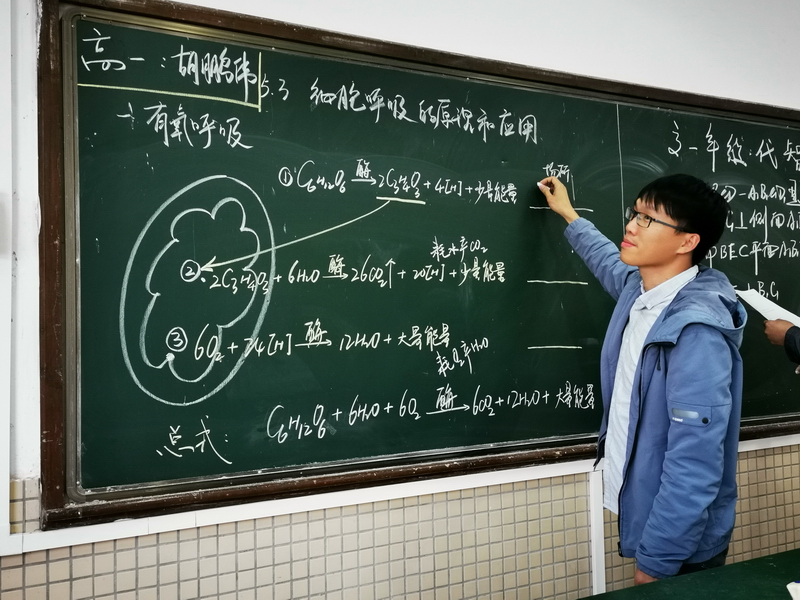 高一：胡鹏伟
5.3 细胞呼吸的原理和应用
一 有氧呼吸
① C₆H₁₂O₆ 酶→ 2C₃H₄O₃ + 4[H] + 少量能量
场所
耗水产CO₂
② 2C₃H₄O₃ + 6H₂O 酶→ 6CO₂↑ + 20[H] + 少量能量
③ 6O₂ + 24[H] 酶→ 12H₂O + 大量能量
耗O₂产H₂O
总式：C₆H₁₂O₆ + 6H₂O + 6O₂ 酶→ 6CO₂ + 12H₂O + 大量能量
高一年级：代